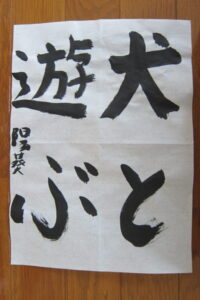 犬と
遊ぶ